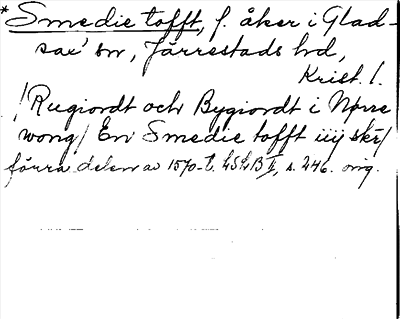 * Smedie tofft, f. åker i Glad-
sax' sn, Järrestads hd,
Krist. l.
/Rugiordt och Bygiordt i Nørre
wong/ En Smedie tofft iiij skr/
förra delen av 1570-t. LSLB II, s. 246. orig.